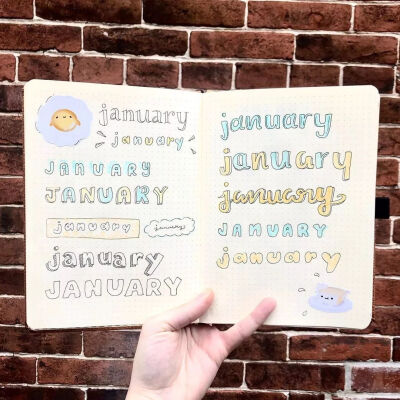 january
january
JANUARY
JANUARY
january
january
january
JANUARY
january
january
january
JANUARY
january